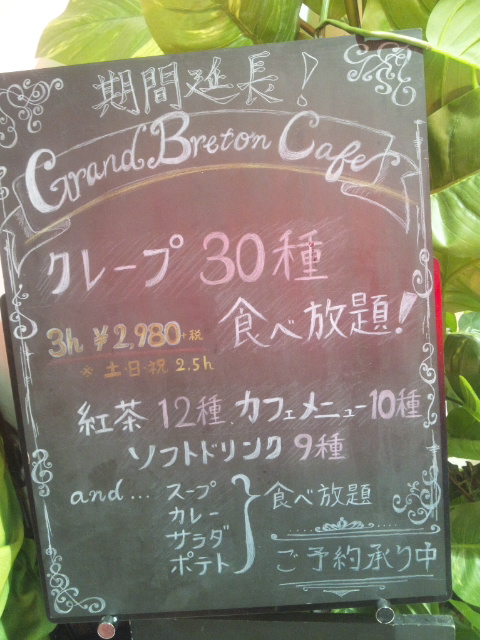 期間延長！
Grand Breton Cafe
クレープ 30種
食べ放題！
3h ¥2,980+税
※ 土・日・祝 2.5h
紅茶 12種、カフェメニュー10種
ソフトドリンク 9種
and... スープ
カレー
サラダ
ポテト
食べ放題
ご予約承り中